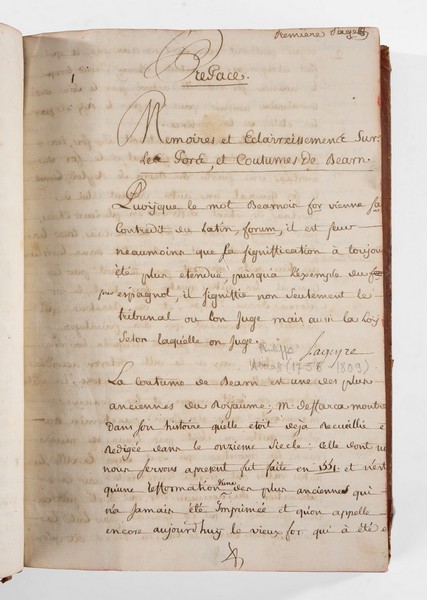 Premiere Page
1
Preface.
Memoires et Eclaircissements Sur
les fors, et Coutumes de Bearn.
Puisque le mot Bearnois for vienne sa
Contredit du latin, forum, il est seur
neaumoins que sa signiffication à toujou
été plus etendue puisqu'a l'exemple du
espagnol, il signiffie non seulement le
tribunal ou l'on Juge mais aussi la Loy
Selon laquelle on Juge.
Lageyre
(1756 1809)
La Coutume de Bearn est une des plus
anciennes du Royaume; Mr. de Marca montre
dans son histoire qu'elle etoit deja recueillie e
Redigée dans le onzieme Siecle: Celle dont n
nous servons apresent fut faite en 1551 et n'est
qu'une refformation d'une des plus anciennes qui
n'a jamais été Imprimée et qu'on appelle
encore aujourd'huy le vieux for qui à été e